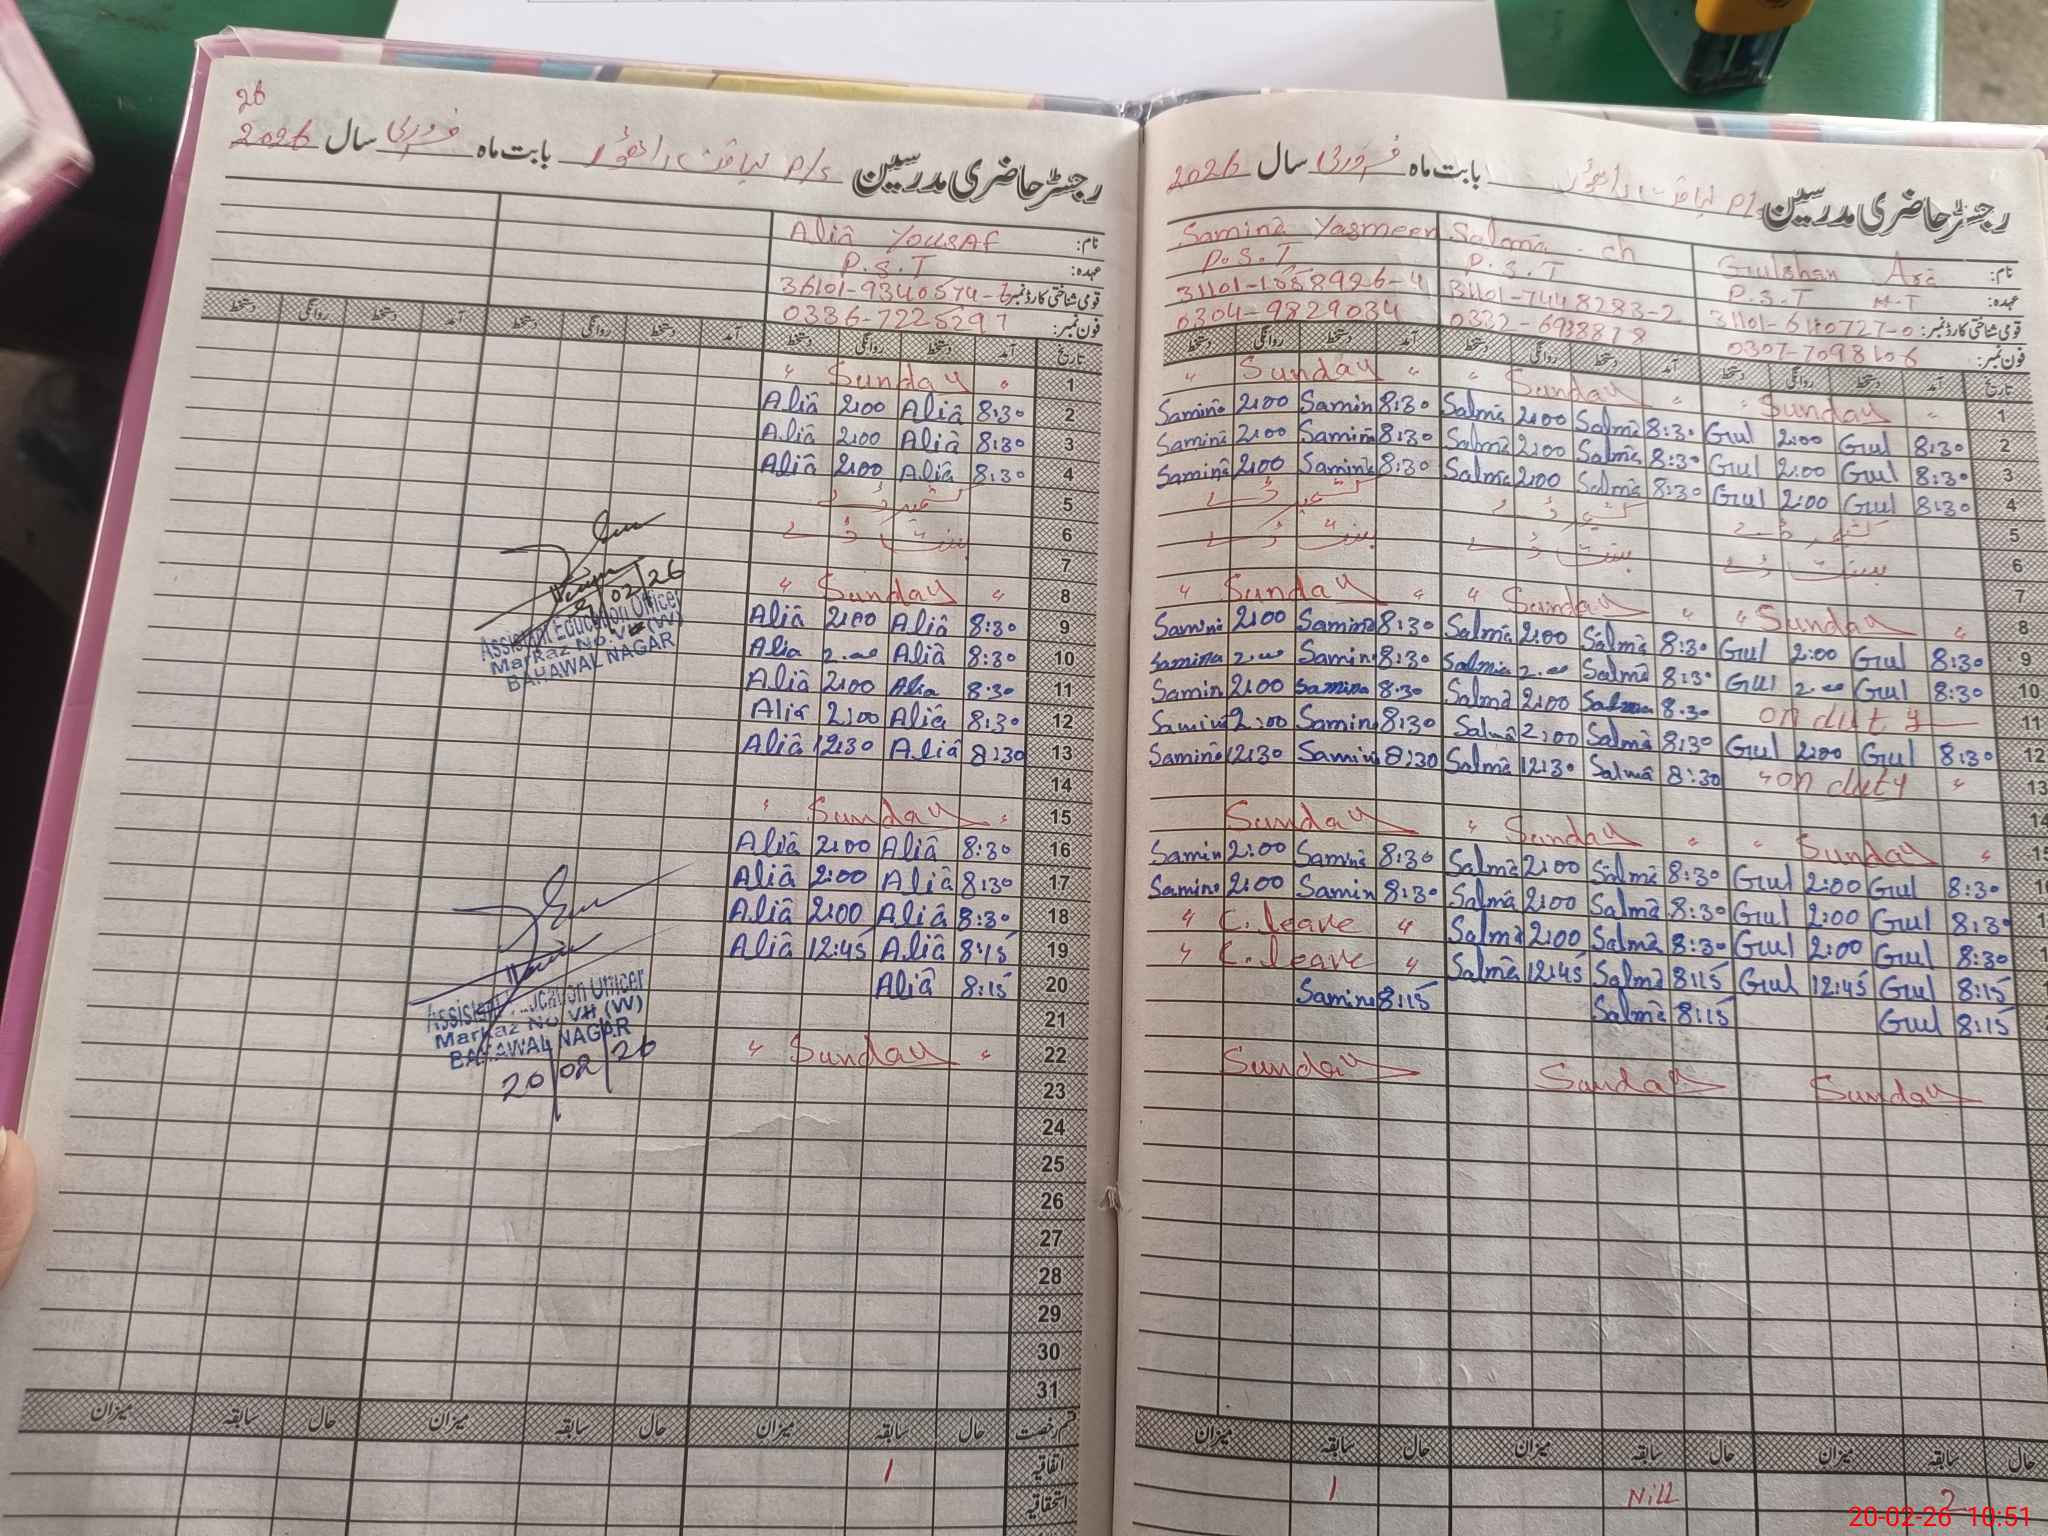 26
رجسٹر حاضری مدرسین P/S لیاقت راٹھور بابت ماہ فروری سال 2026
نام: Alia Yousaf
عہدہ: P.S.T
قومی شناختی کارڈ نمبر:
فون نمبر: 0336-7225297
تاریخ آمد دستخط روانگی دستخط آمد دستخط روانگی دستخط آمد دستخط روانگی دستخط
1 " Sunday "
2 8:30 Alia 2:00 Alia
3 8:30 Alia 2:00 Alia
4 8:30 Alia 2:00 Alia
5 کشمیر ڈے
6 بسنت ڈے
7
8 " Sunday "
9 8:30 Alia 2:00 Alia
10 8:30 Alia 2.00 Alia
11 8:30 Alia 2:00 Alia
12 8:30 Alia 2:00 Alia
13 8:30 Alia 12:30 Alia
14
15 " Sunday "
16 8:30 Alia 2:00 Alia
17 8:30 Alia 2:00 Alia
18 8:30 Alia 2:00 Alia
19 8:15 Alia 12:45 Alia
20 8:15 Alia
21
22 " Sunday "
23
24
25
26
27
28
29
30
31
قسم رخصت حال سابقہ میزان حال سابقہ میزان حال سابقہ میزان
اتفاقیہ 1
استحقاقیہ
02/26
Assistant Education Officer
Markaz No. VII (W)
BAHAWAL NAGAR
Assistant Education Officer
Markaz No VII (W)
BAHAWAL NAGAR
20/02/26
رجسٹر حاضری مدرسین P/S لیاقت راٹھور بابت ماہ فروری سال 2026
نام: Gulshan Ara Salma ch Samina Yasmeen
عہدہ: P.S.T H.T P.S.T P.S.T
قومی شناختی کارڈ نمبر: 31101-7448283-2
فون نمبر: 0307-7098106 0304-9829034
تاریخ آمد دستخط روانگی دستخط آمد دستخط روانگی دستخط آمد دستخط روانگی دستخط
1 " Sunday " " Sunday " " Sunday "
2 8:30 Gul 2:00 Gul 8:30 Salma 2:00 Salma 8:30 Samin 2:00 Samina
3 8:30 Gul 2:00 Gul 8:30 Salma 2:00 Salma 8:30 Samina 2:00 Samina
4 8:30 Gul 2:00 Gul 8:30 Salma 2:00 Salma 8:30 Samina 2:00 Samina
5 کشمیر ڈے کشمیر ڈے کشمیر ڈے
6 بسنت ڈے بسنت ڈے بسنت ڈے
7
8 " Sunday " " Sunday " " Sunday "
9 8:30 Gul 2:00 Gul 8:30 Salma 2:00 Salma 8:30 Samina 2:00 Samina
10 8:30 Gul 2.00 Gul 8:30 Salma 2.00 Salma 8:30 Samina 2.00 Samina
11 on duty 8:30 Salma 2:00 Salma 8:30 Samina 2:00 Samin
12 8:30 Gul 2:00 Gul 8:30 Salma 2:00 Salma 8:30 Samina 2:00 Samina
13 " on duty " 8:30 Salma 12:30 Salma 8:30 Samina 12:30 Samina
14
15 " Sunday " " Sunday " Sunday
8:30 Gul 2:00 Gul 8:30 Salma 2:00 Salma 8:30 Samina 2:00 Samin
8:30 Gul 2:00 Gul 8:30 Salma 2:00 Salma 8:30 Samin 2:00 Samina
8:30 Gul 2:00 Gul 8:30 Salma 2:00 Salma " C.leave "
8:15 Gul 12:45 Gul 8:15 Salma 12:45 Salma " C.leave "
8:15 Gul 8:15 Salma 8:15 Samina
Sunday Sunday Sunday
حال سابقہ میزان حال سابقہ میزان حال سابقہ میزان
2 Nill 1
20-02-26 10:51